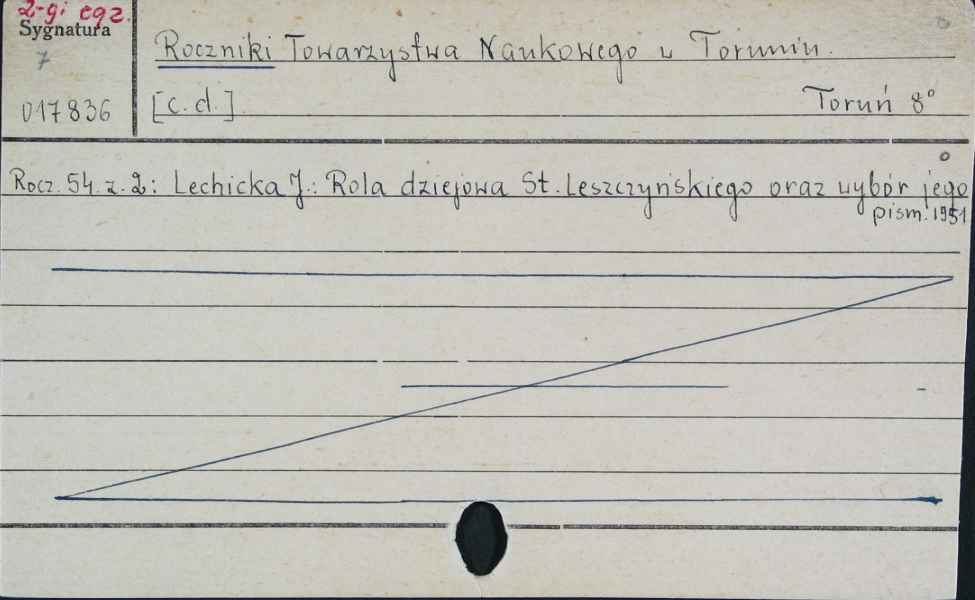 2-gi egz.
Sygnatura
7
017836
Roczniki Towarzystwa Naukowego w Toruniu.
[c.d.]
Toruń 8°
Rocz. 54. z. 2: Lechicka J.: Rola dziejowa St. Leszczyńskiego oraz wybór jego
pism. 1951